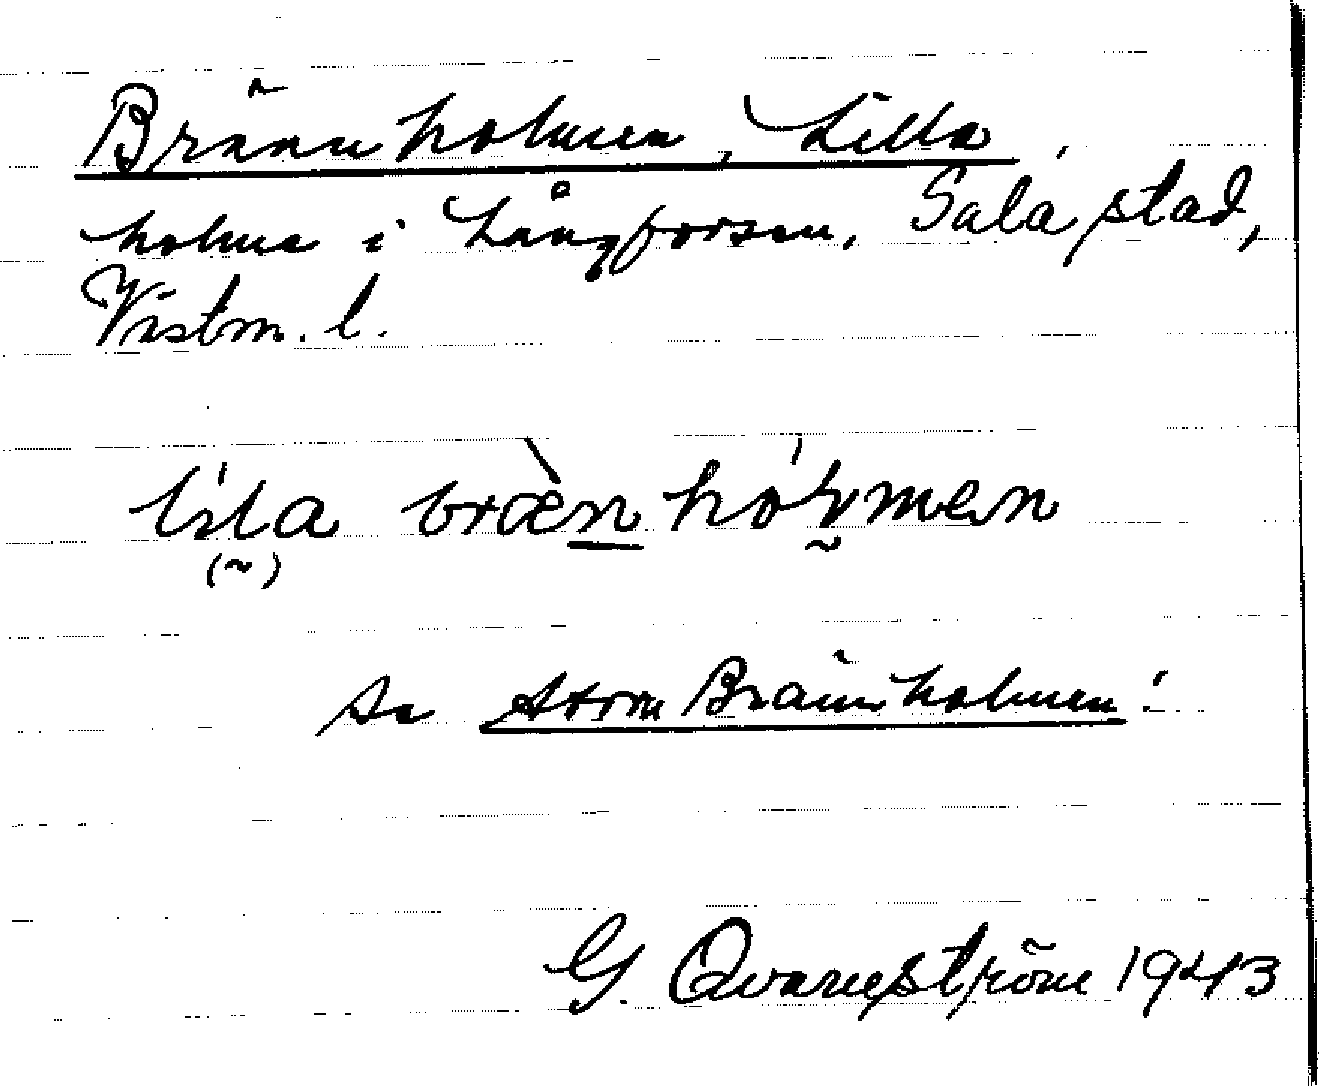 Brännholmen, Lilla,
holme i Långforsen, Sala stad,
Västm. l.
lila bræn hólmen
(~)
Se Stora Brännholmen!
G. Qvarngström 1943